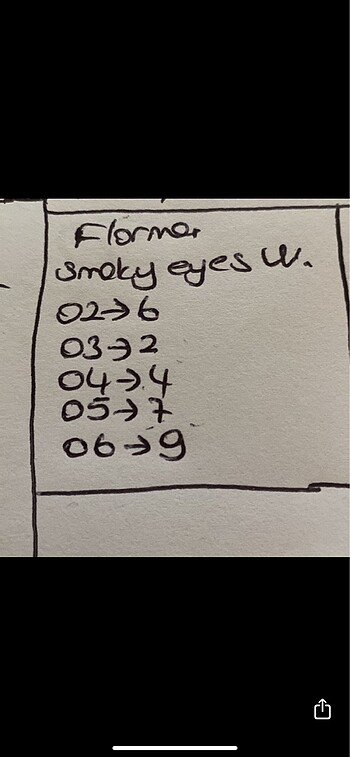 Flormar
smoky eyes W.
02→6
03→2
04→4
05→7
06→9